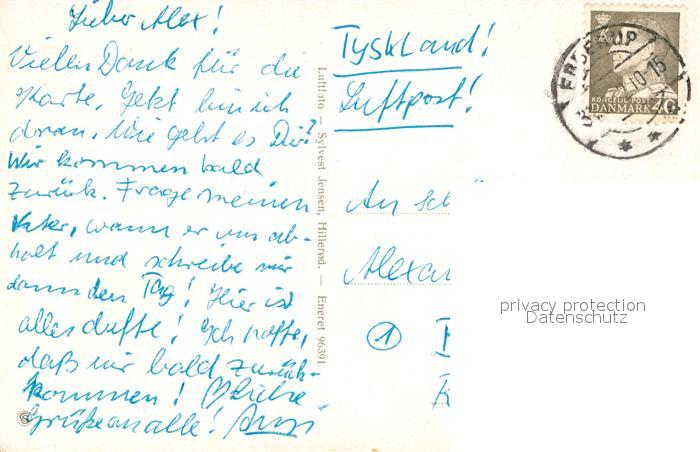 Lieber Alex!
Vielen Dank für die
Karte. Jetzt bin ich
dran. Wie geht es Dir?
Wir kommen bald
zurück. Frage meinen
Vater, wann er uns ab-
holt und schreibe mir
dann den Tag! Hier ist
alles dufte! Ich hoffe,
daß wir bald zurück-
kommen! Liebe
Grüße an alle!
Luftfoto — Sylvest Jensen, Hillerød. — Eneret 96391
Tyskland!
Luftpost!
An
Alexan
1
KONGELIG POST
DANMARK 40
privacy protection
Datenschutz